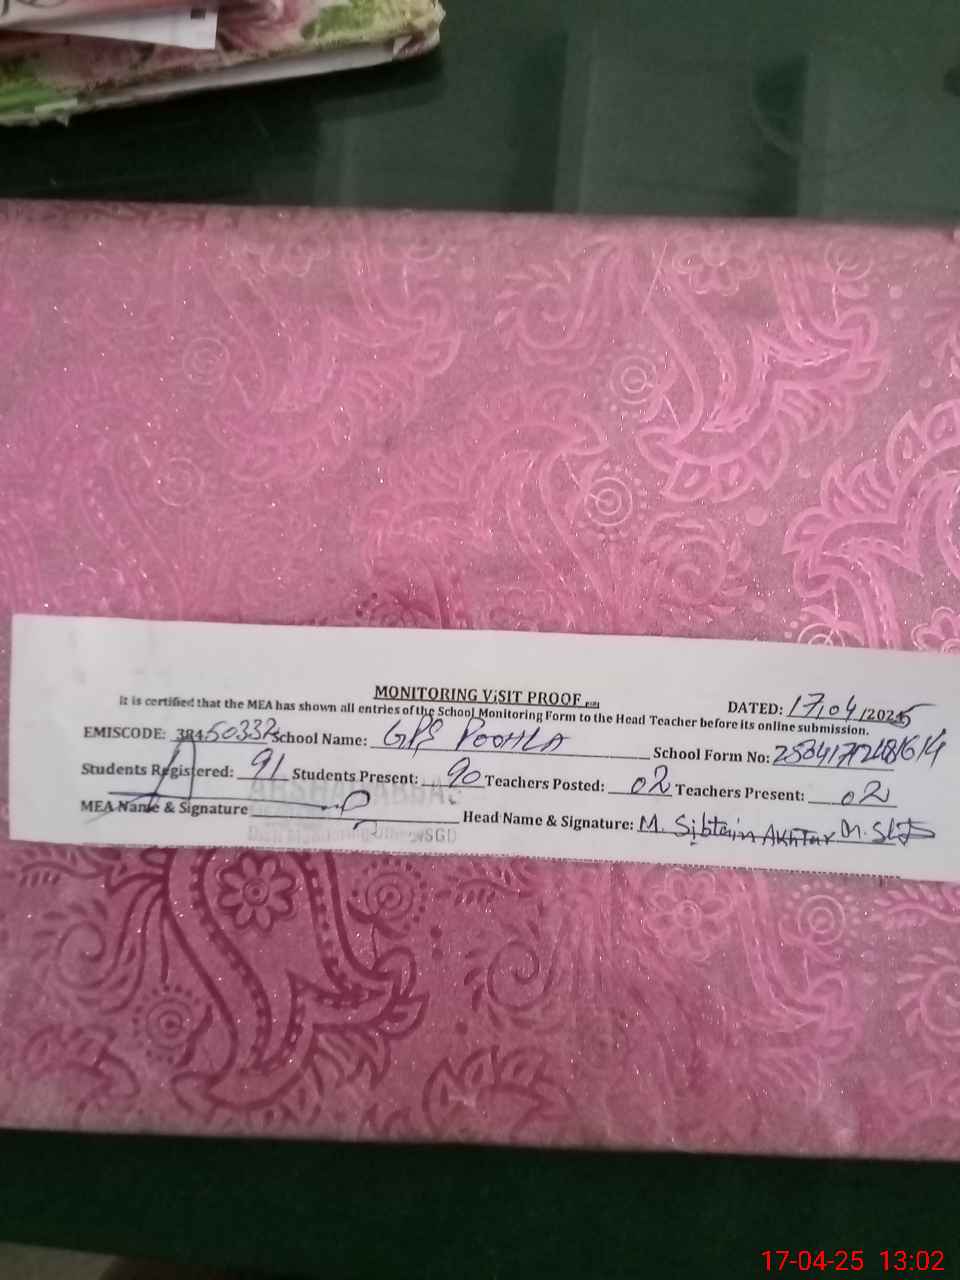 MONITORING ViSIT PROOF
DATED: 17/04/2025
It is certified that the MEA has shown all entries of the School Monitoring Form to the Head Teacher before its online submission.
EMISCODE: School Name: GPS POOHLA School Form No:
Students Registered: 91 Students Present: 90 Teachers Posted: 02 Teachers Present: 02
MEA Name & Signature Head Name & Signature: M. Sibtain Akhtar
SGD
17-04-25 13:02